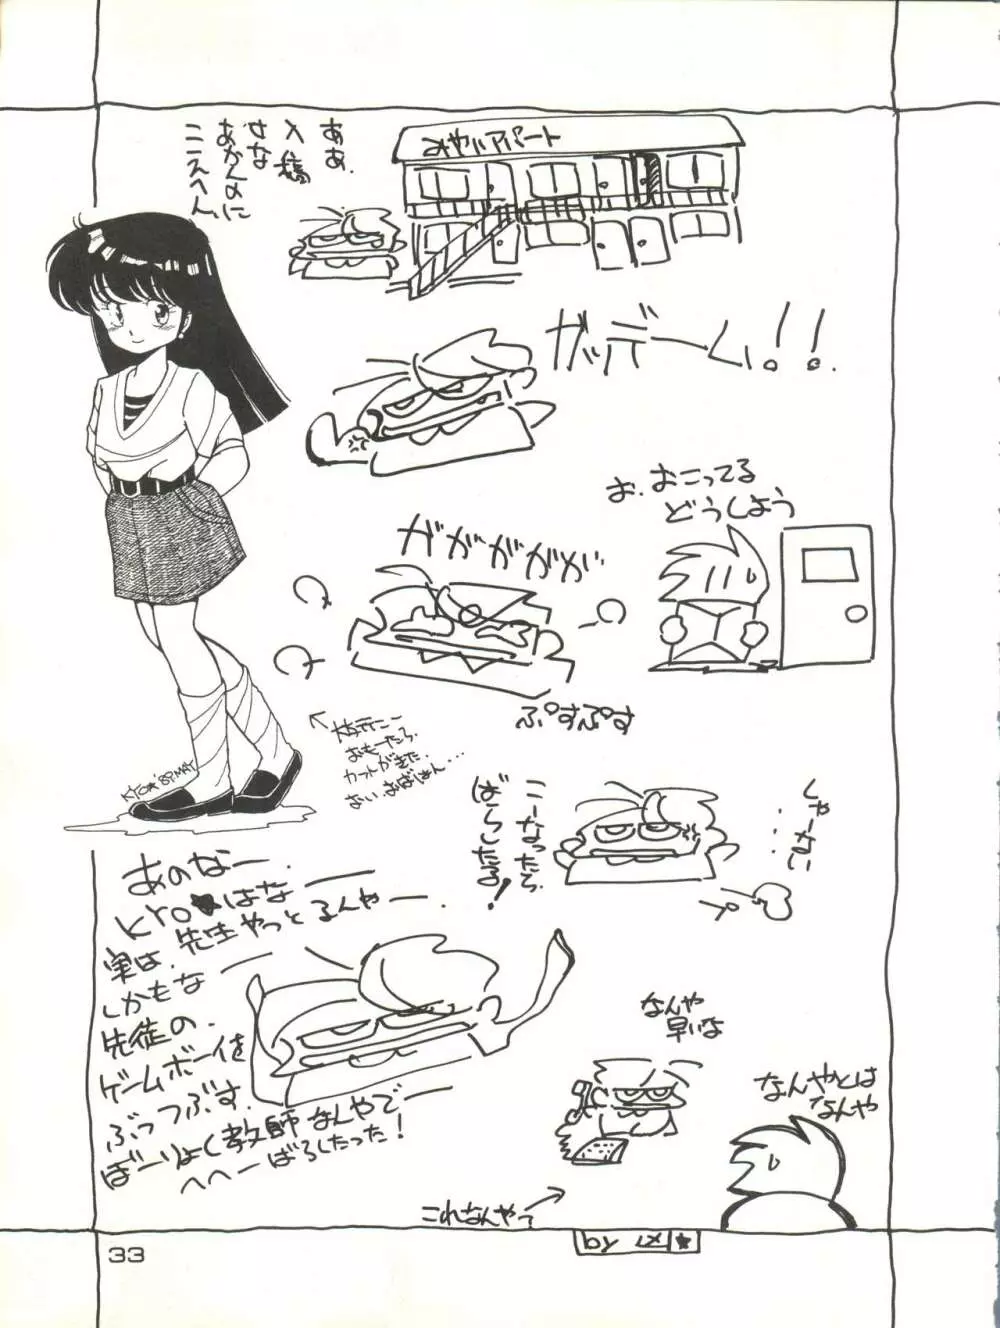 みやいアパート
ああ.
入稿
せな
あかんのに
こえへん.
ガッデーム!!.
お.おこってる
どうしよう
ガガガガガ
ぷすぷす
おもーたら.
カットがきた
KYO★'89.MAY
こーなったら
ばらしたる!
しゃーない
・・・
あのなー.
KYO★はな
実は.先生やっとるんやー.
しかもな
先徒の.
ゲームボーイを
ぶっつぶす.
ぼーりょく教師なんやでー
へへーばらしたった!
なんや
早いな
なんやとは
なんや
これなんやって
33